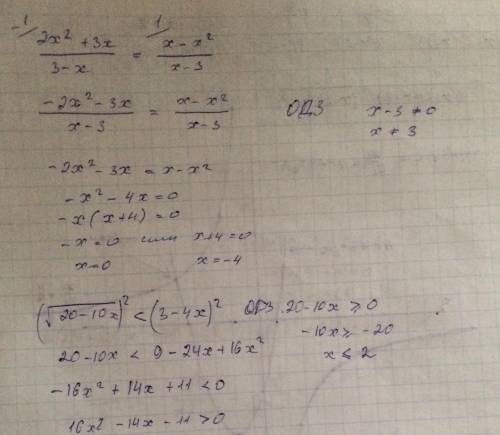 -1/ 1/
(2x² + 3x)/(3-x) = (x - x²)/(x-3)
(-2x² - 3x)/(x-3) = (x - x²)/(x-3) ОДЗ x-3 ≠ 0
x ≠ 3
-2x² - 3x = x - x²
-x² - 4x = 0
-x(x+4) = 0
-x = 0 или x+4 = 0
x = 0 x = -4
(√(20-10x))² < (3-4x)². ОДЗ. 20-10x ⩾ 0
-10x ⩾ -20
x ⩽ 2
20-10x < 9 - 24x + 16x²
-16x² + 14x + 11 < 0
16x² - 14x - 11 > 0